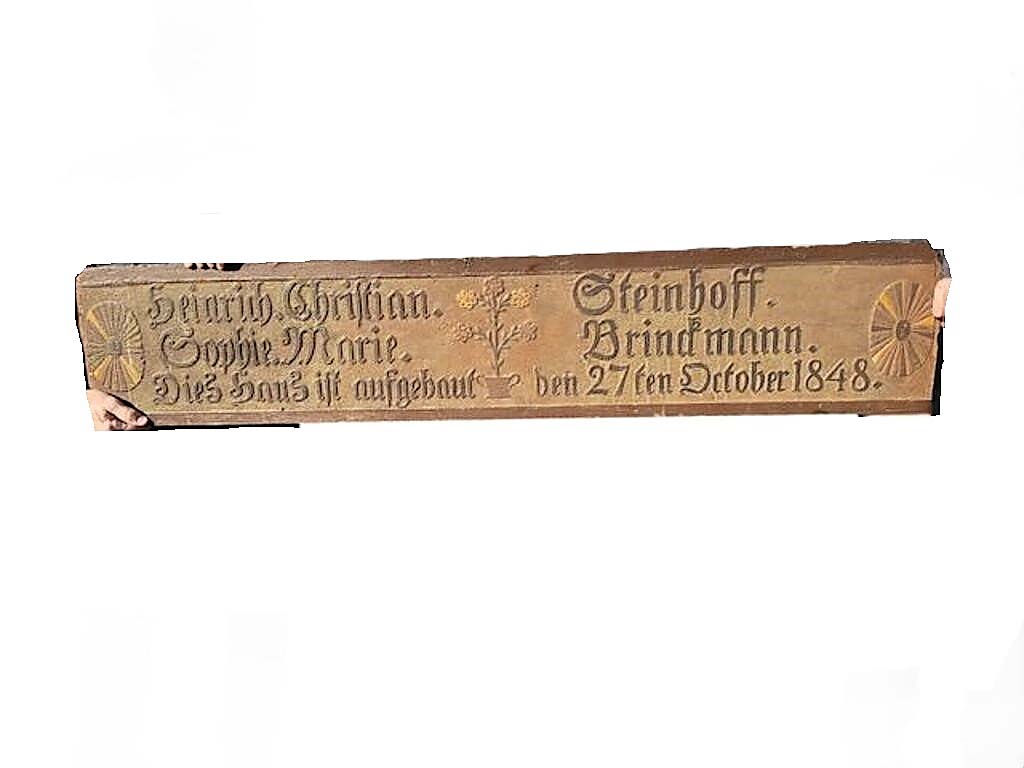 Heinrich. Christian. Steinhoff.
Sophie. Marie. Brinckmann.
Dies Haus ist aufgebaut den 27ten October 1848.